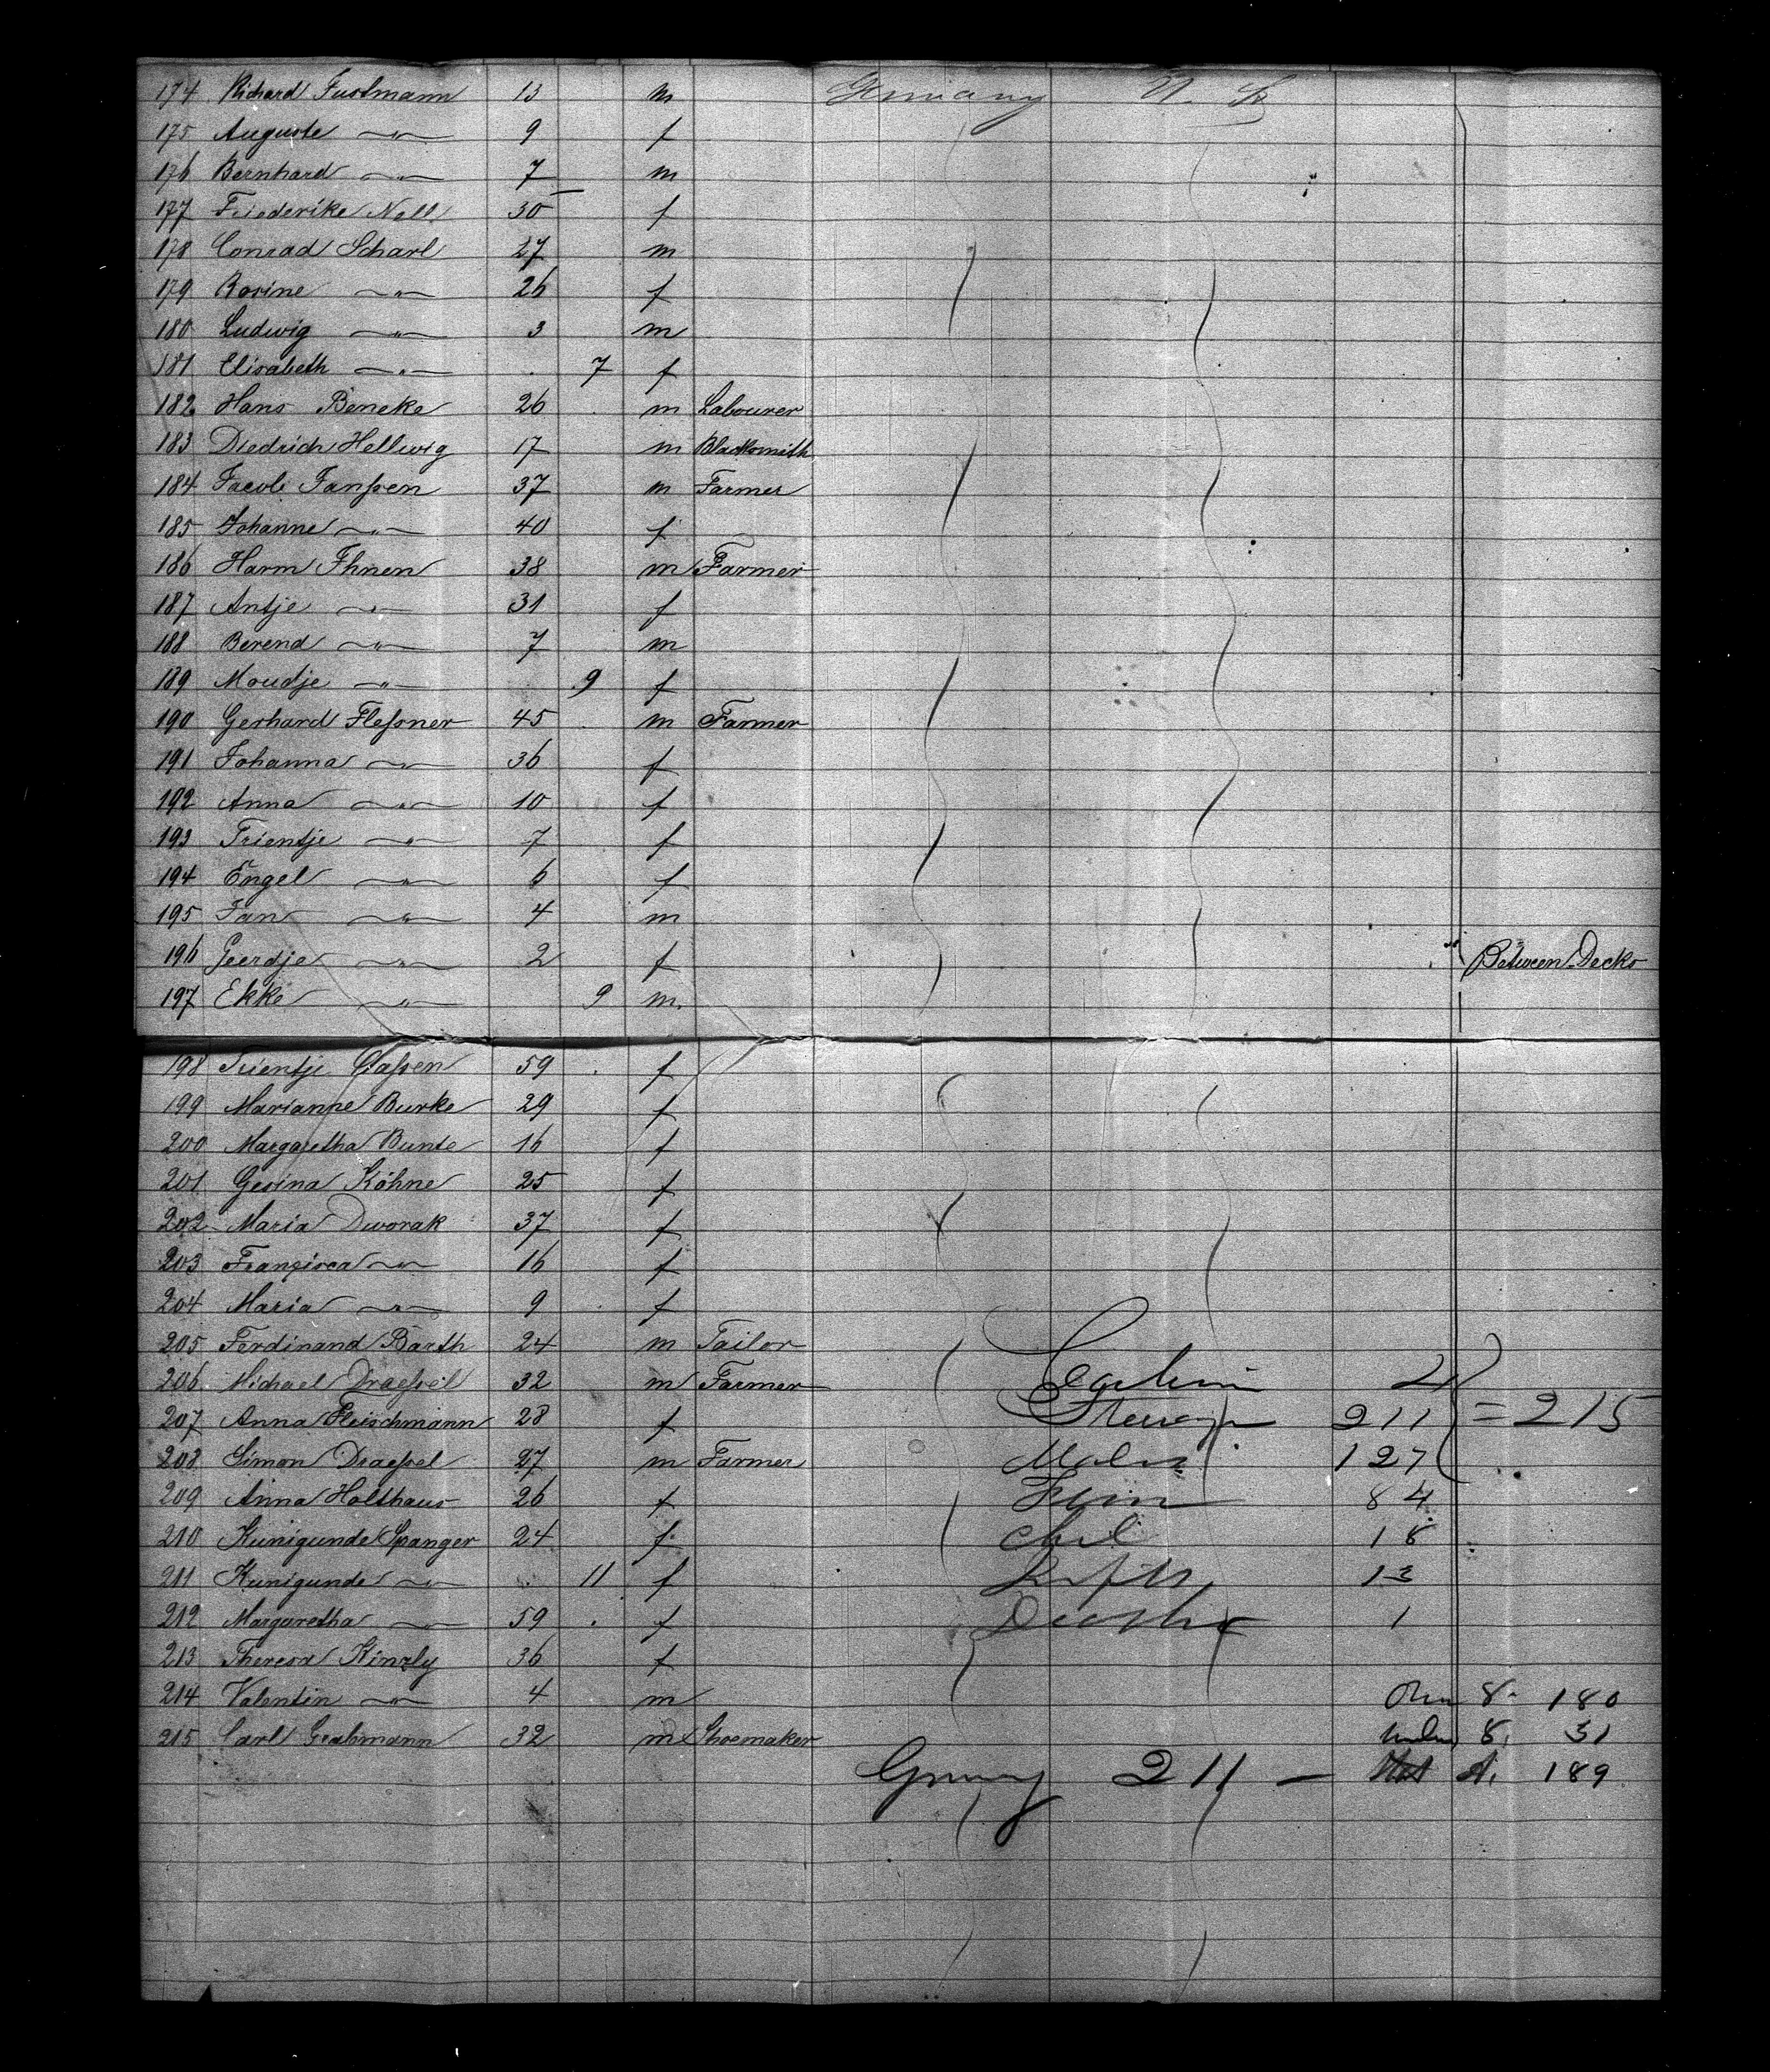 174 Richard Fustmann 13 m Germany U. S.
175 Auguste —"— 9 f
176 Bernhard —"— 7 m
177 Friederike Noll 30 f
178 Conrad Scharl 27 m
179 Rosine —"— 26 f
180 Ludwig —"— 3 m
181 Elisabeth —"— . 7 f
182 Hans Beneke 26 m Labourer
183 Diedrich Hellwig 17 m Blacksmith
184 Jacob Janssen 37 m Farmer
185 Johanne —"— 40 f
186 Harm Ihnen 38 m Farmer
187 Antje —"— 31 f
188 Berend —"— 7 m
189 Moudje —"— 9 f
190 Gerhard Flessner 45 m Farmer
191 Johanna —"— 36 f
192 Anna —"— 10 f
193 Trientje —"— 7 f
194 Engel —"— 6 f
195 Jan —"— 4 m
196 Geerdje —"— 2 f Between Decks
197 Ekke —"— 9 m.
198 Trientje Classen 59 . f
199 Marianne Burke 29 f
200 Margaretha Bunte 16 f
201 Gesina Köhne 25 f
202 Maria Dworak 37 f
203 Franzisca —"— 16 f
204 Maria —"— 9 f
205 Ferdinand Barth 24 m Tailor
206 Michael Draessel 32 m Farmer
207 Anna Fleischmann 28 f 211 = 215
208 Simon Draessel 27 m Farmer Males 127
209 Anna Holthaus 26 f Fem 84
210 Kunigunde Spanger 24 f. Chil 18
211 Kunigunde —"— . 11 f Infts 13
212 Margaretha —"— 59 . f Deaths 1
213 Theresa Kinzly 36 f
214 Valentin —"— 4 m 8. 180
215 Carl Grabmann 32 m Shoemaker under 8. 31
Grmny 211 — 189